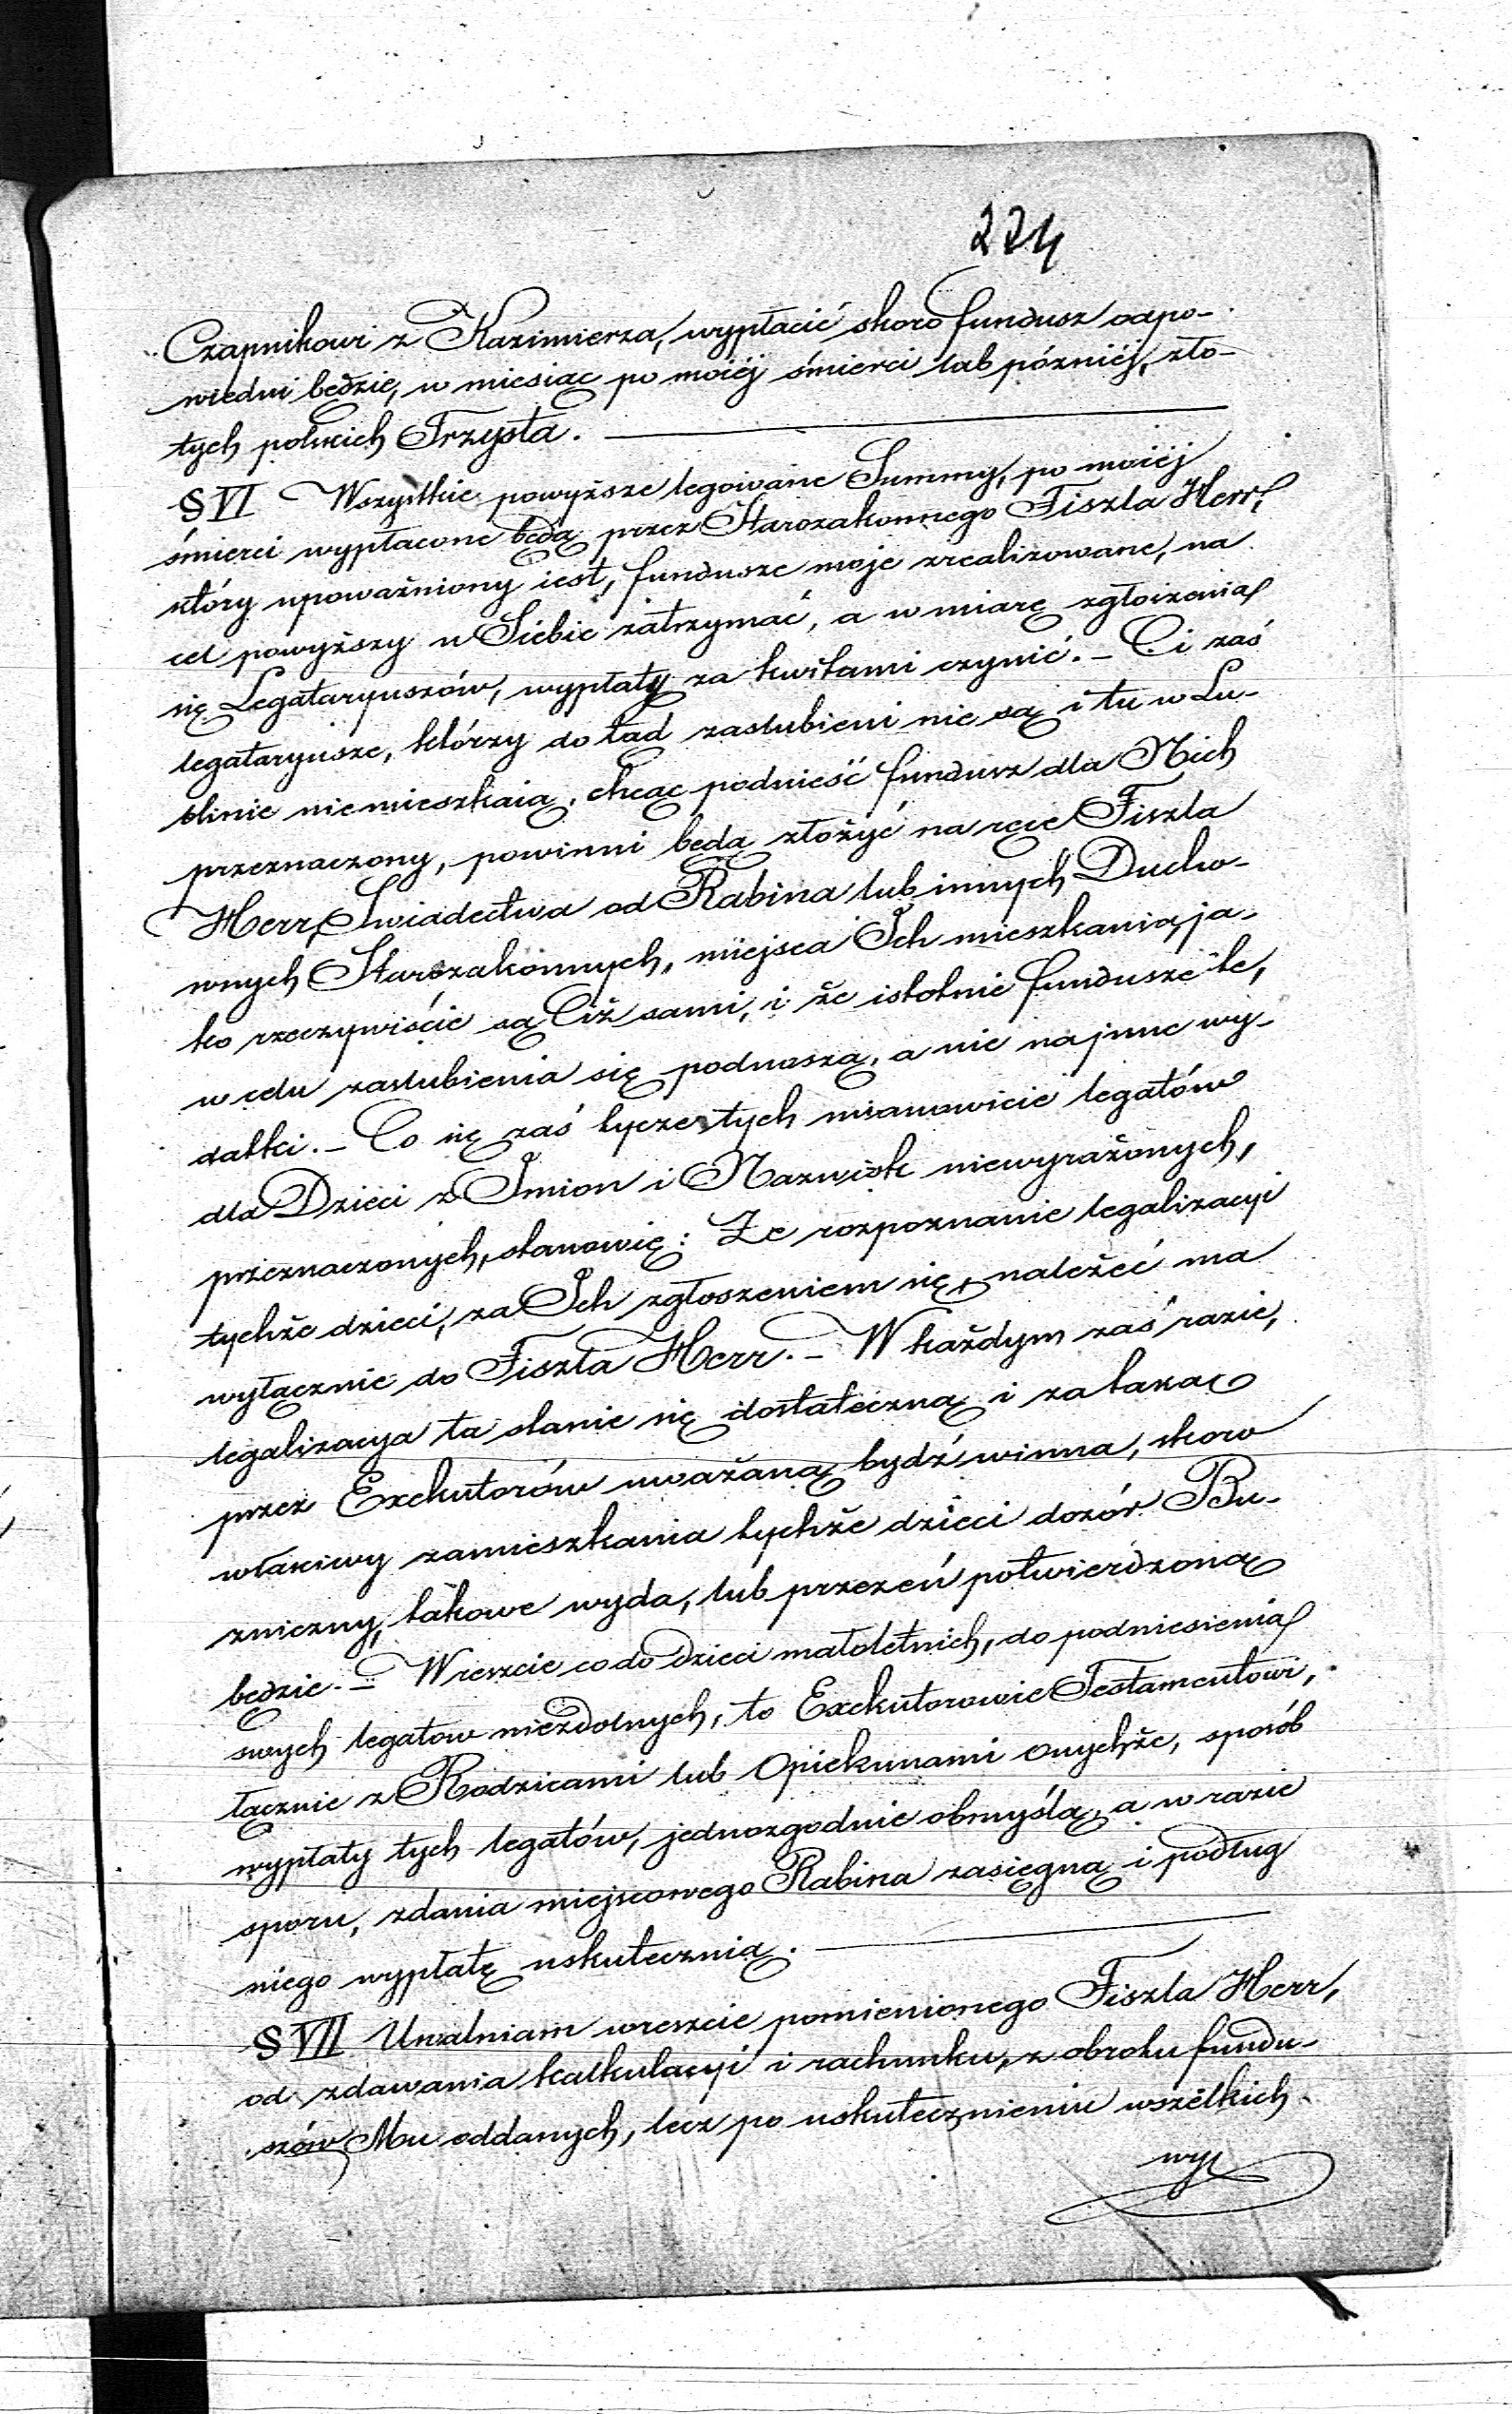 224
Czapnikowi z Kazimierza, wypłacić skoro fundusz odpo-
wiedni będzie, w miesiąc po moiéj śmierci lub późniéj, zło-
tych polskich Trzysta.
§ VI Wszystkie powyższe legowane Summy, po moiéj
śmierci wypłacone będą przez Starozakonnego Fiszla Herr,
który upoważniony iest, fundusze moje zrealizowane, na
cel powyższy u Siebie zatrzymać, a w miarę zgłoszenia
się Legataryuszów, wypłaty za kwitami czynić. – Ci zaś
legataryusze, którzy do tąd zaslubieni nie są i tu w Lu-
blinie nie mieszkaią, chcąc podnieść fundusz dla Nich
przeznaczony, powinni będą złożyć na ręce Fiszla
Herr, Swiadectwa od Rabina lub innych Ducho-
wnych Starozakonnych, miejsca Ich mieszkania, ja-
ko rzeczywiście są Ciż sami, i że istotnie fundusze te,
w celu zaslubienia się podnoszą, a nie na jnne wy-
datki. – Co się zaś tycze tych mianowicie legatów
dla Dzieci z Imion i Nazwisk niewyrażonych,
przeznaczonych, stanowię: Ze rozpoznanie legalizacyi
tychże dzieci, za Ich zgłoszeniem się, należeć ma
wyłącznie do Fiszla Herr. – W każdym zaś razie,
legalizacya ta stanie się dostateczną i za taką
przez Exekutorów uważaną bydź winna, skoro
właściwy zamieszkania tychże dzieci dozór Bu-
zniczny, takowe wyda, lub przezeń potwierdzona
będzie. – Wreszcie co do dzieci małoletnich, do podniesienia
swych legatow niezdolnych, to Exekutorowie Testamentowi,
łącznie z Rodzicami lub Opiekunami onychże, sposób
wypłaty tych legatów, jednozgodnie obmyślą, a w razie
sporu, zdania miejscowego Rabina zasięgną i podług
niego wypłatę uskutecznią.
§ VII Uwalniam wreszcie pomienionego Fiszla Herr,
od zdawania kalkulacyi i rachunku, z obrotu fundu-
szów Mu oddanych, lecz po uskutecznieniu wszelkich
wy